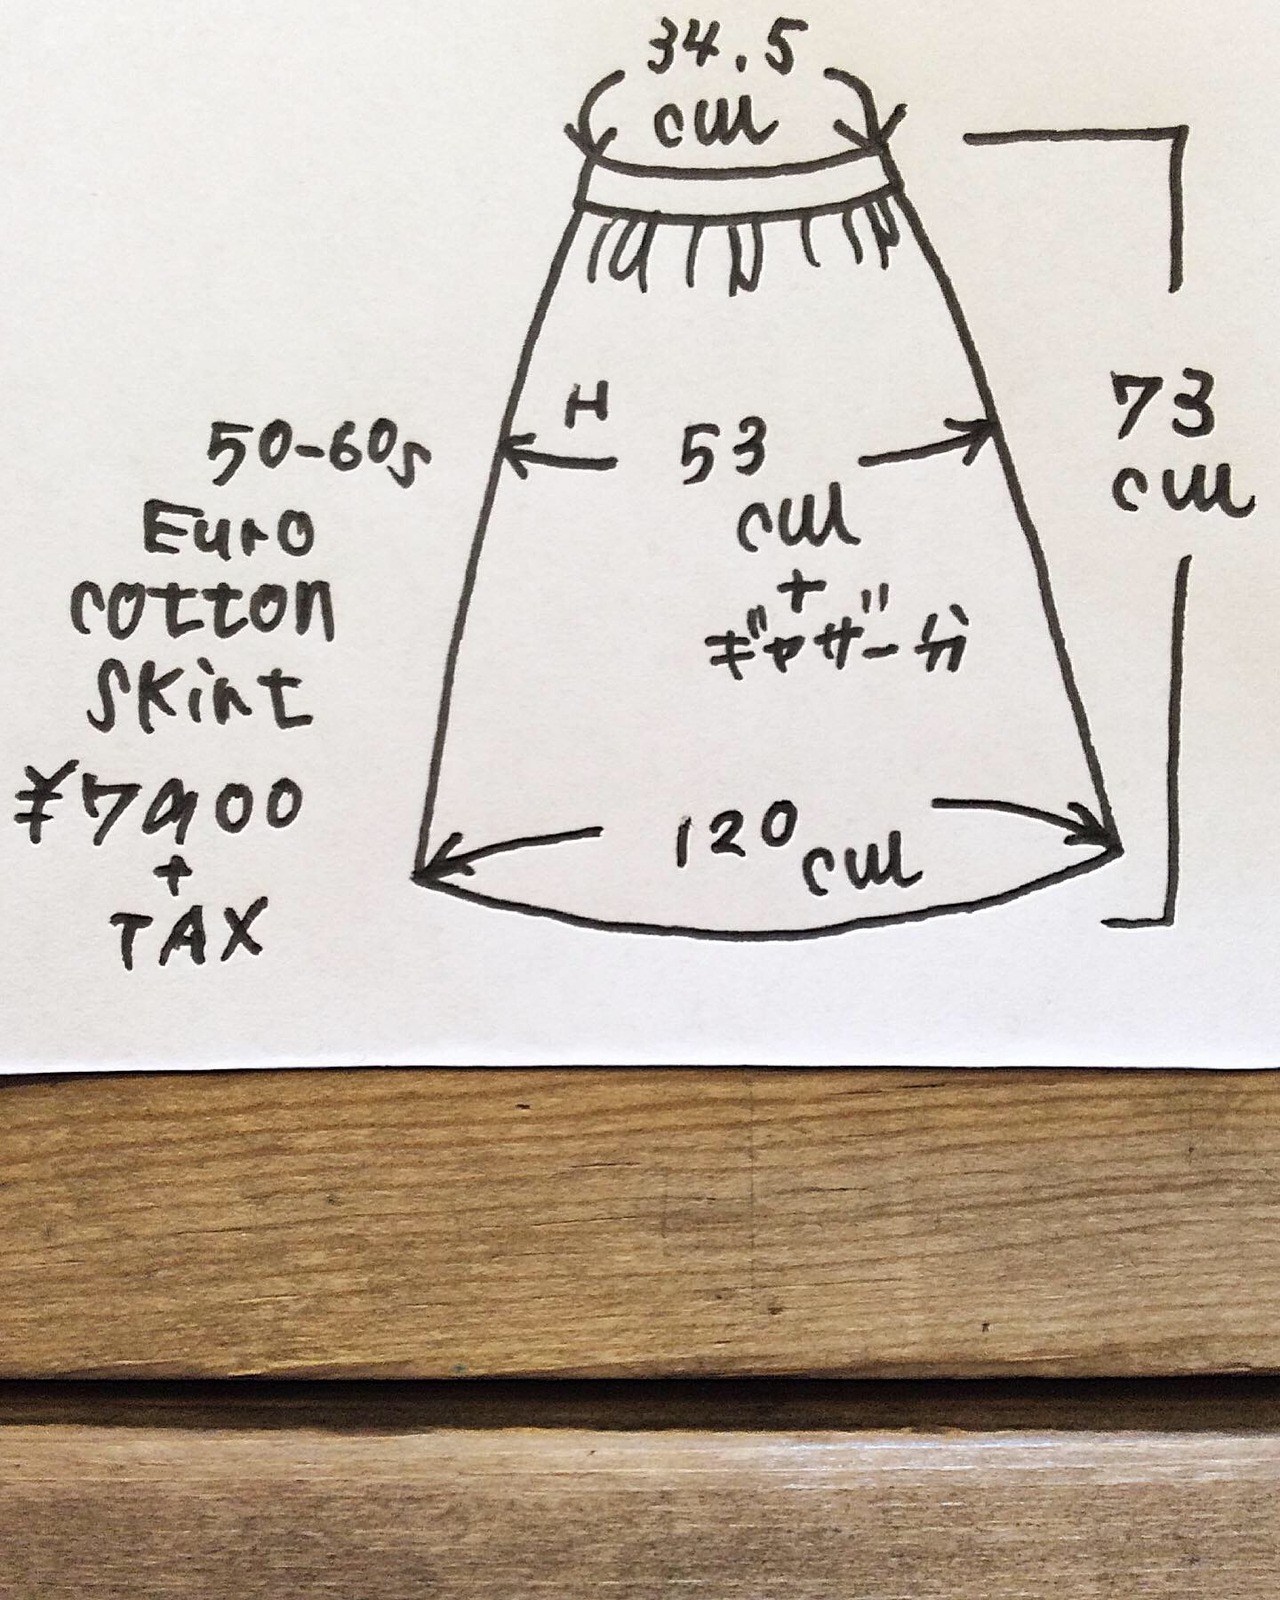 34.5
cm
H
53
cm
+
ギャザー分
73
cm
120
cm
50-60s
Euro
cotton
Skirt
¥7900
+
TAX